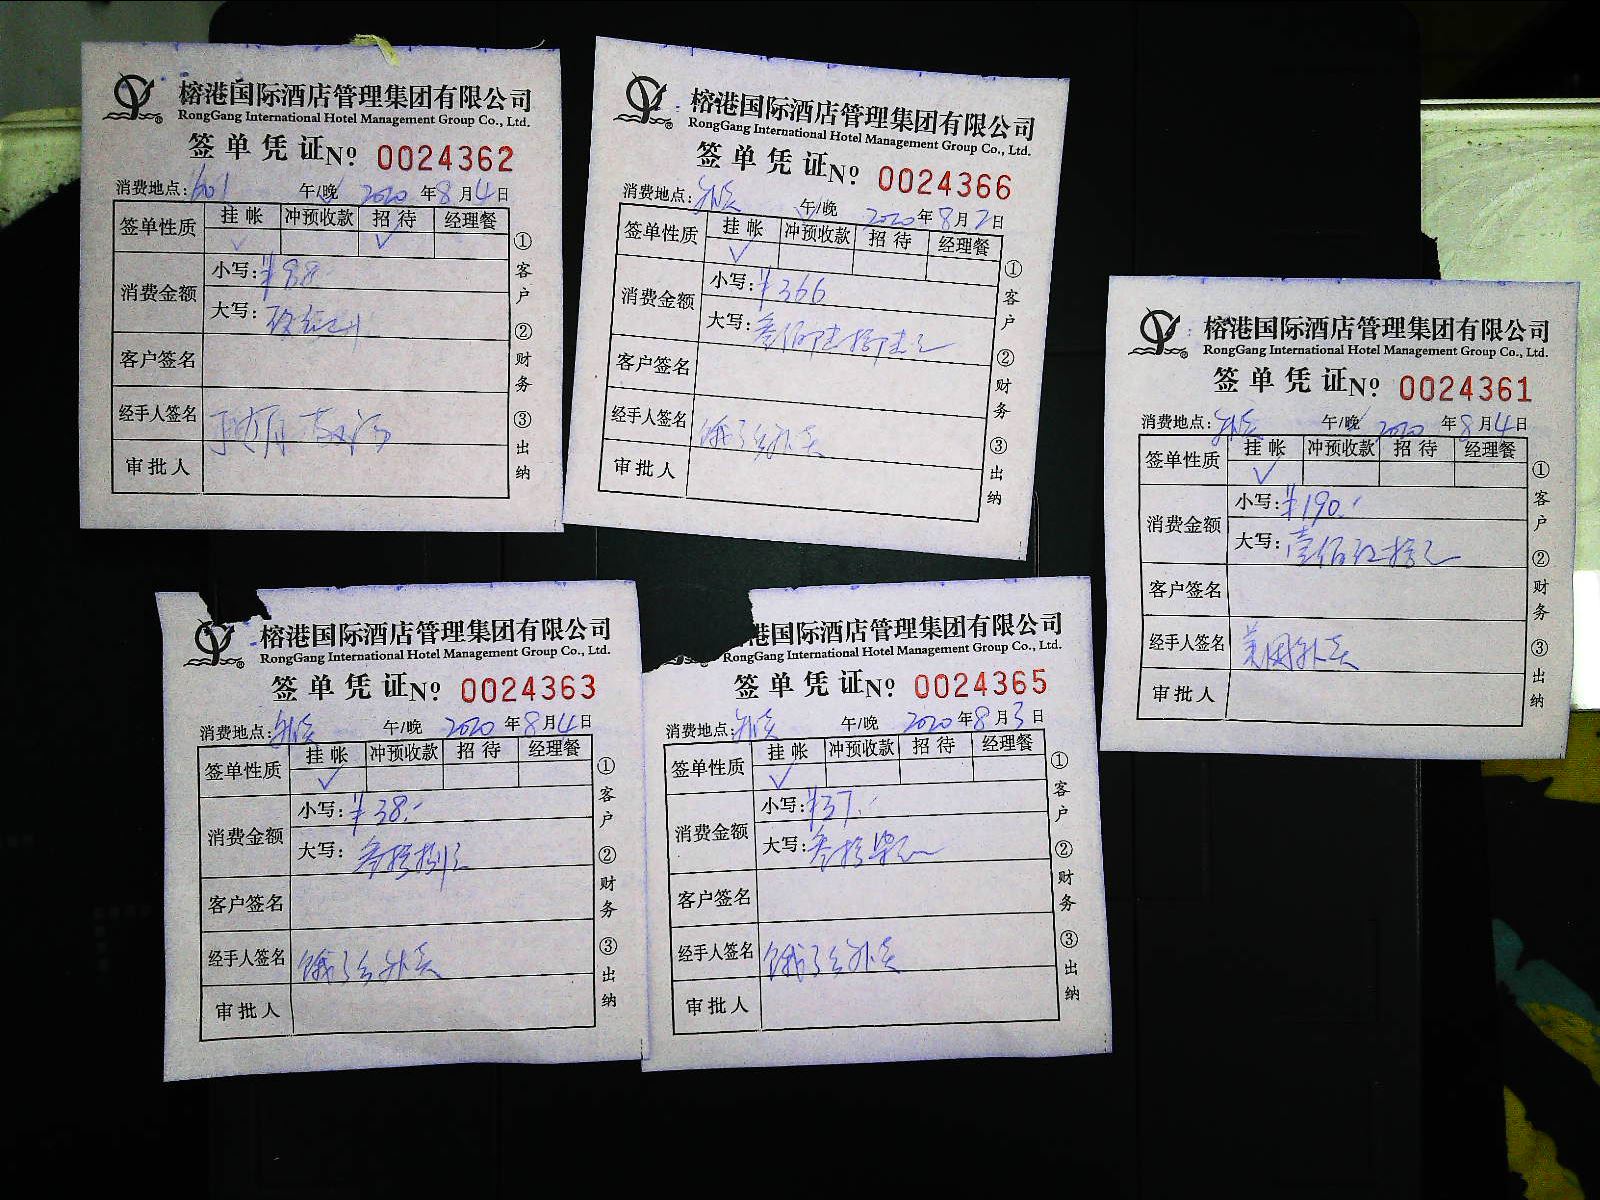 榕港国际酒店管理集团有限公司
RongGang International Hotel Management Group Co., Ltd.
签单凭证 Nº 0024362
消费地点: 601 午/晚 2020 年 8 月 4 日
签单性质 挂帐 冲预收款 招待 经理餐
消费金额 小写: ¥88
大写:
客户签名
经手人签名
审批人
①客户 ②财务 ③出纳
榕港国际酒店管理集团有限公司
RongGang International Hotel Management Group Co., Ltd.
签单凭证 Nº 0024366
消费地点: 外卖 午/晚 2020 年 8 月 2 日
签单性质 挂帐 冲预收款 招待 经理餐
消费金额 小写: ¥366
大写: 叁佰陆拾陆元
客户签名
经手人签名 饿了么外卖
审批人
①客户 ②财务 ③出纳
榕港国际酒店管理集团有限公司
RongGang International Hotel Management Group Co., Ltd.
签单凭证 Nº 0024361
消费地点: 外卖 午/晚 2020 年 8 月 4 日
签单性质 挂帐 冲预收款 招待 经理餐
消费金额 小写: ¥190.-
大写: 壹佰玖拾元
客户签名
经手人签名 美团外卖
审批人
①客户 ②财务 ③出纳
榕港国际酒店管理集团有限公司
RongGang International Hotel Management Group Co., Ltd.
签单凭证 Nº 0024363
消费地点: 外卖 午/晚 2020 年 8 月 4 日
签单性质 挂帐 冲预收款 招待 经理餐
消费金额 小写: ¥38.-
大写: 叁拾捌元
客户签名
经手人签名 饿了么外卖
审批人
①客户 ②财务 ③出纳
港国际酒店管理集团有限公司
RongGang International Hotel Management Group Co., Ltd.
签单凭证 Nº 0024365
消费地点: 外卖 午/晚 2020 年 8 月 3 日
签单性质 挂帐 冲预收款 招待 经理餐
消费金额 小写: ¥37.-
大写: 叁拾柒元
客户签名
经手人签名 饿了么外卖
审批人
①客户 ②财务 ③出纳